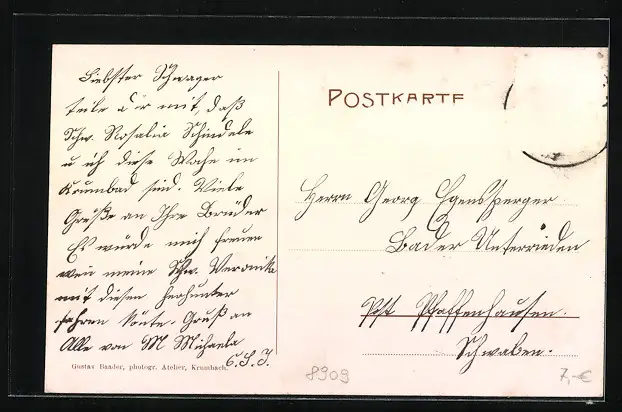 Liebster Schwager
teile Dir mit, daß
Schw. Rosalia Schindele
u ich diese Woche im
Krumbad sind. Viele
Grüße an Ihre Brüder
Es würde mich freuen
wen meine Schw. Veronika
mit diesen herunter
fahren könte. Gruß an
Alle von M Michaela
C. S. J.
Gustav Baader, photogr. Atelier, Krumbach.
POSTKARTE
Herrn Georg Egensperger
Bader Unterrieden
Post Pfaffenhausen.
Schwaben.
8909
7,-€